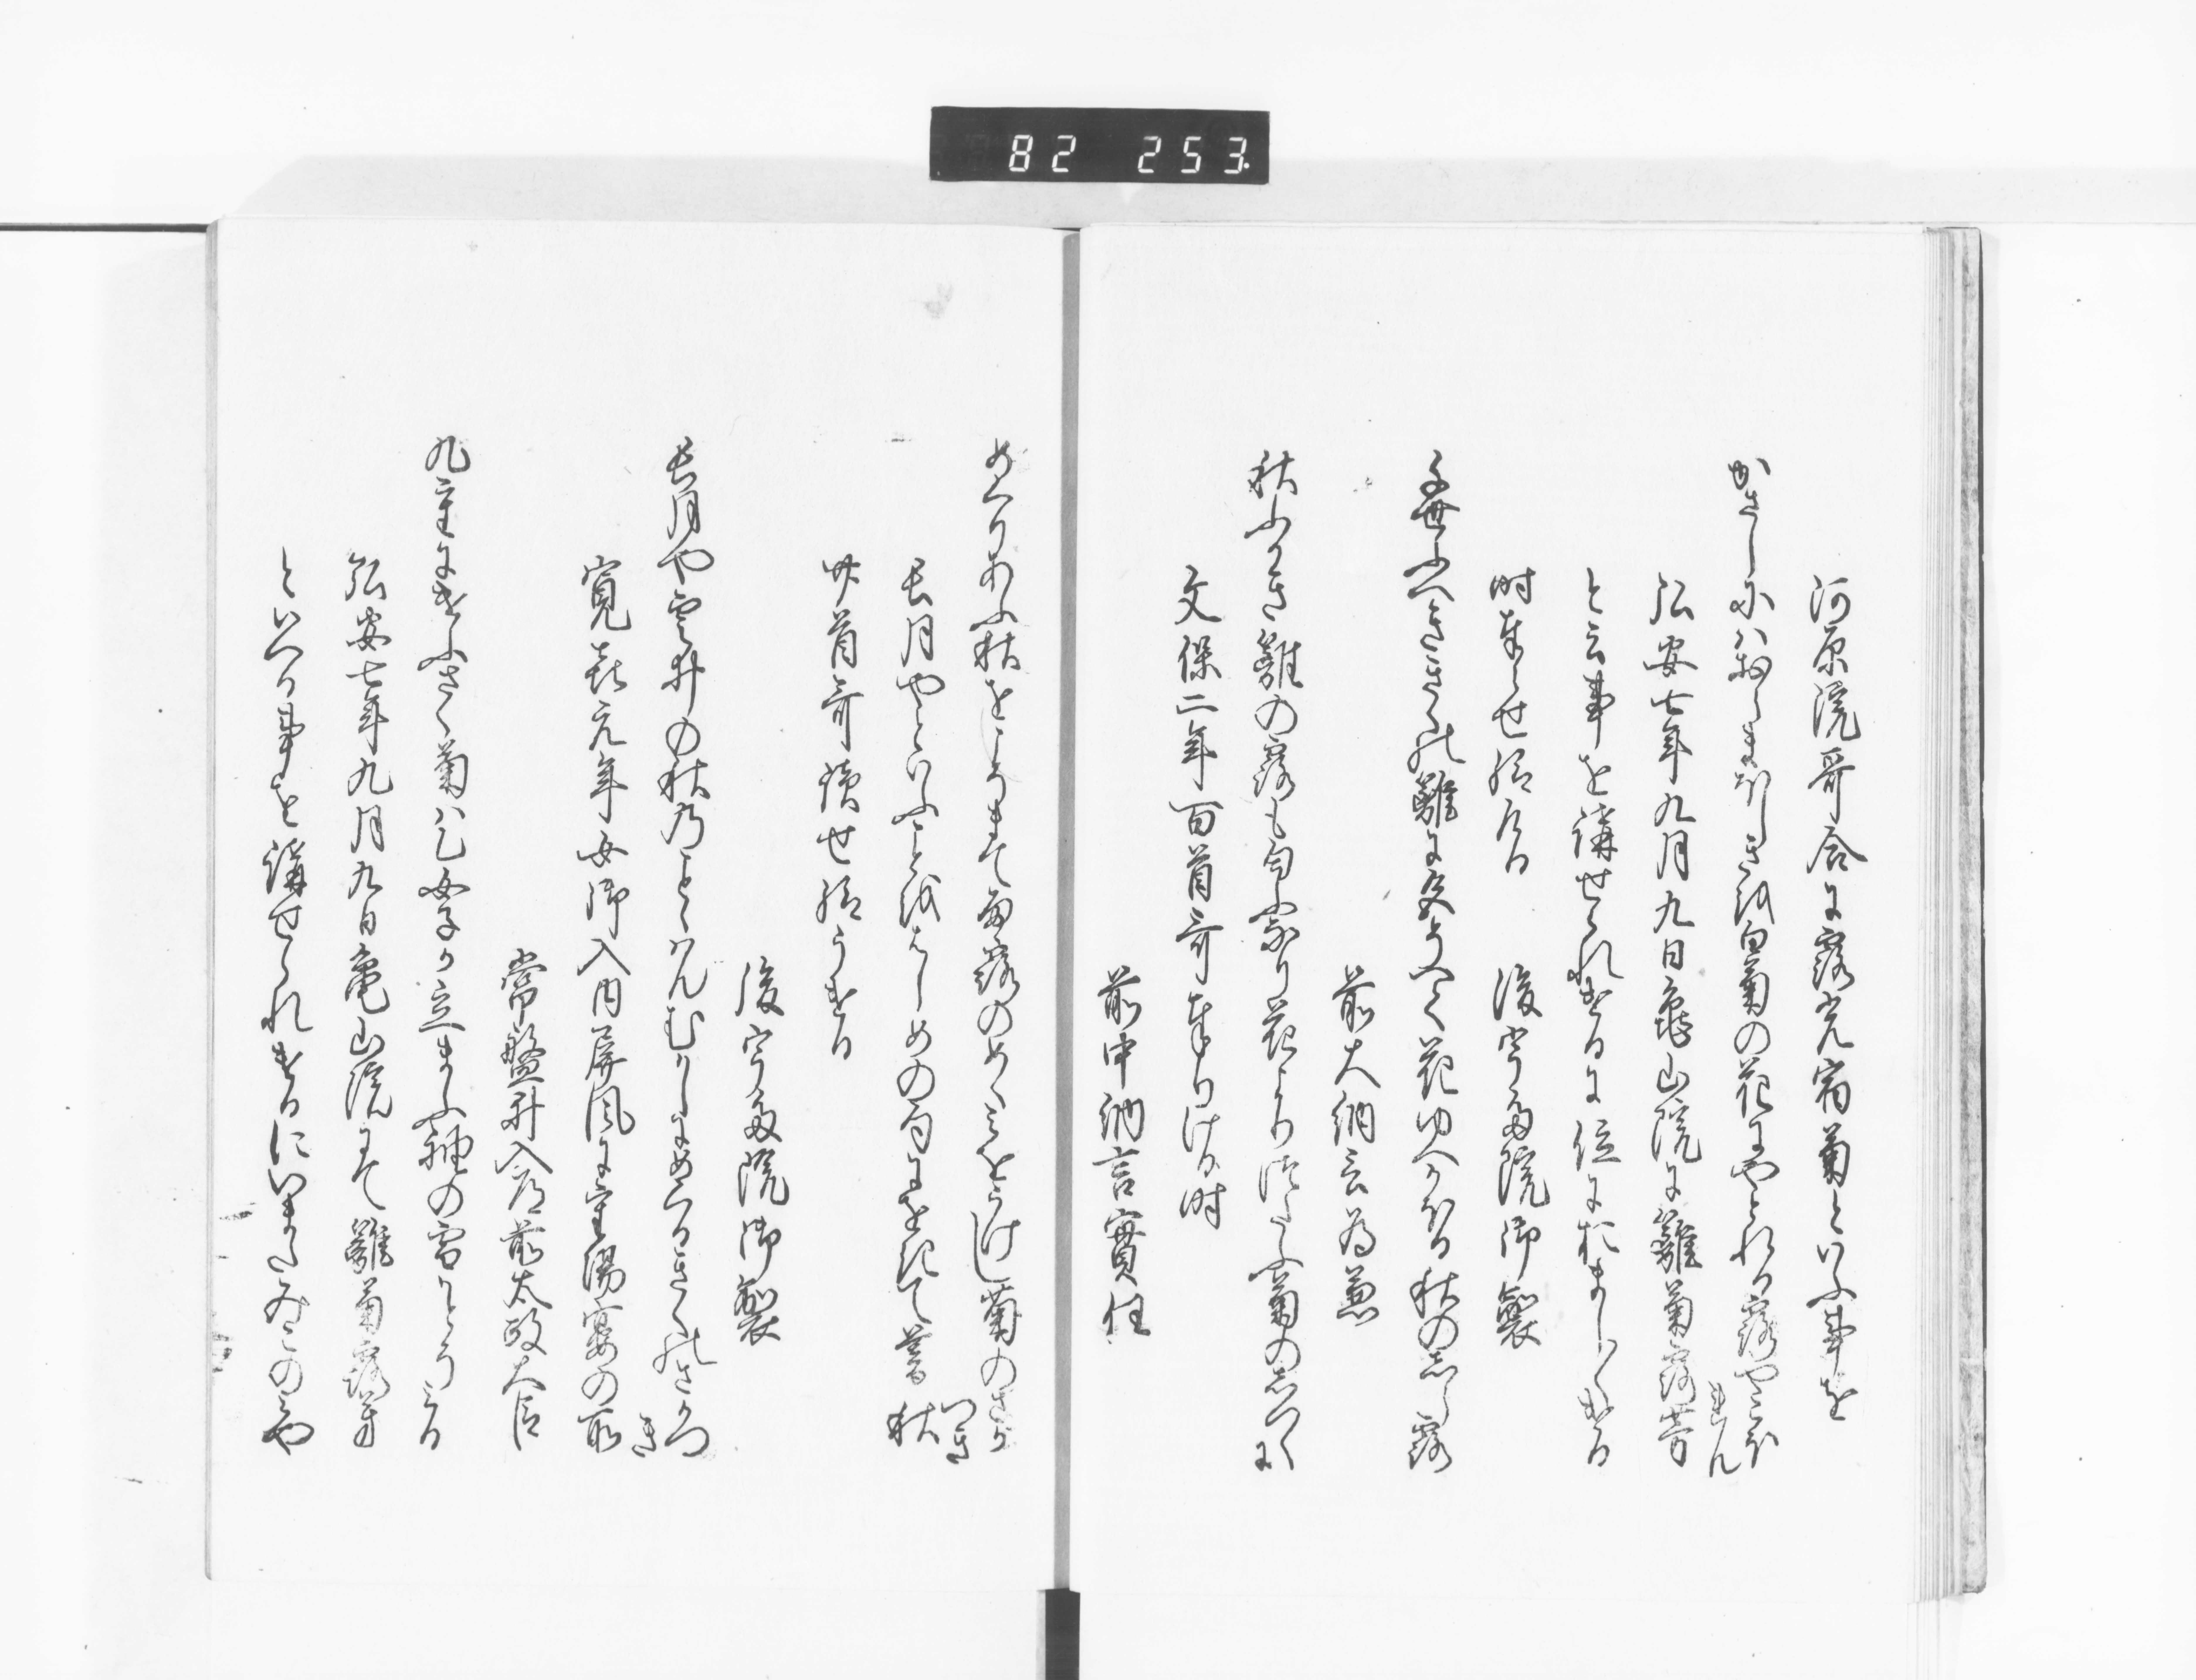 82 253.
河原院哥合に露光宿菊といふ事を
かさしにはおらまほしきを白菊の花にやとれる露やこほ
れん
弘安七年九月九日亀山院に籬菊露芳
と云事を講せられけるに位におましくける
時奉らせ給ける　後宇多院御製
千世ふへききくの籬に
花ゆへかほる秋のしら露
前大納言為兼
秋ふかき籬の露も匂ふなり花よりつたふ菊のしつくに
文保二年百首哥奉りける時
前中納言實任
めくりあふ秋をこゝのまて白露のめくみをうけし菊のさか
つき
長月やといふことをはしめの句にをきて暮秋
廿首哥読せ給うける
後宇多院御製
長月や雲井の秋のことゝはんむかしにめくるきくのさかつ
き
寛喜元年女御入内屏風に重陽宴の所
常盤井入道前太政大臣
九重にけふさく菊は乙女子か立まふ袖の雪かとそみる
弘安七年九月九日亀山院にて籬菊露芳
といへる事を講せられけるにいまたみこのみや